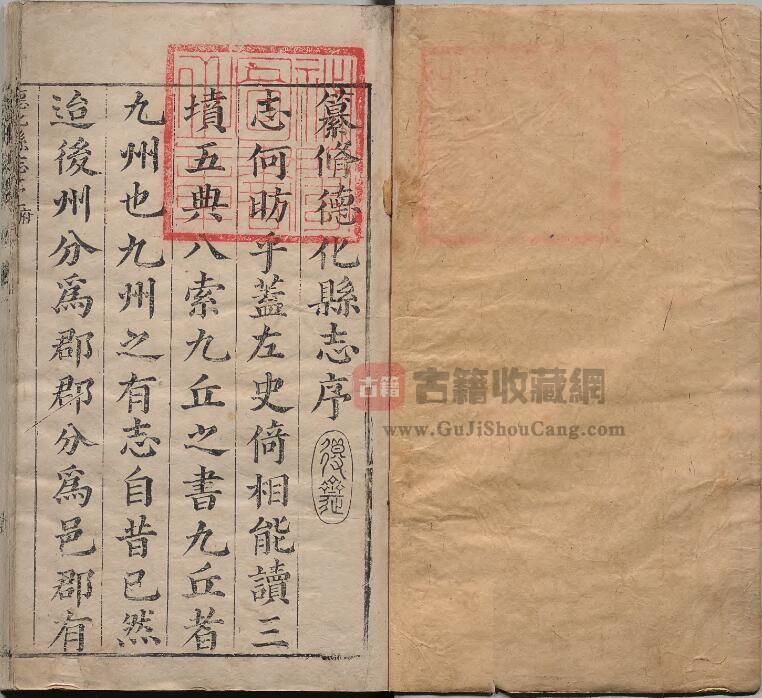 纂脩德化縣志序
志何昉乎蓋左史倚相能讀三
墳五典八索九丘之書九丘者
九州也九州之有志自昔已然
迨後州分爲郡郡分爲邑郡有
德化縣志
古籍 古籍收藏網
www.GuJiShouCang.com